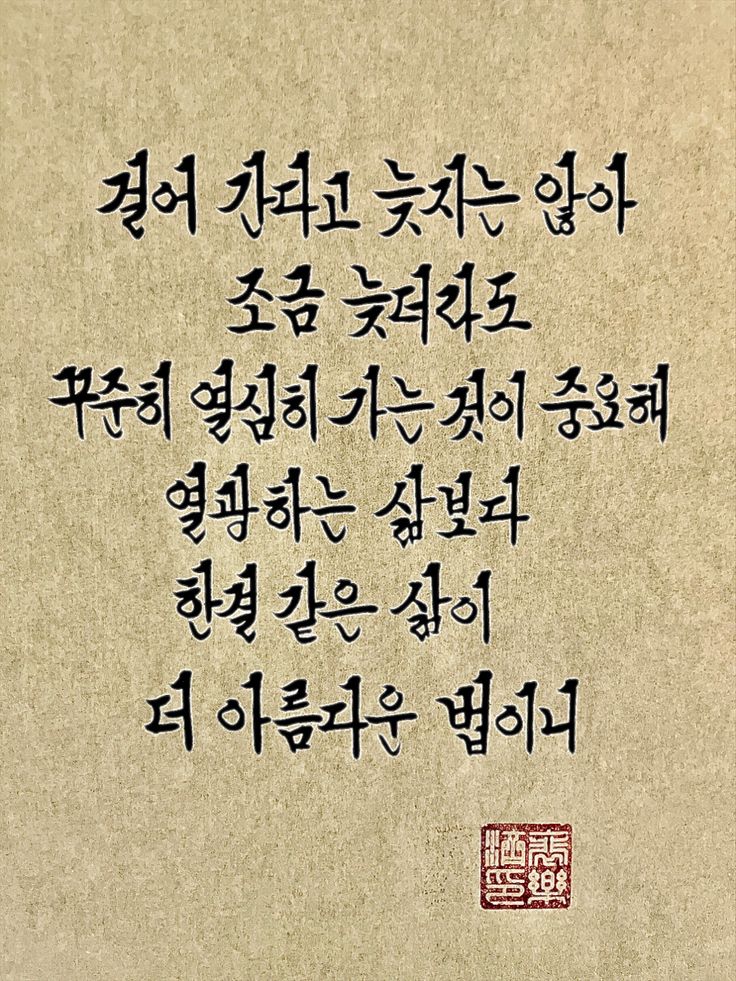 걸어 간다고 늦지는 않아
조금 늦더라도
꾸준히 열심히 가는 것이 중요해
열광하는 삶보다
한결 같은 삶이
더 아름다운 법이니